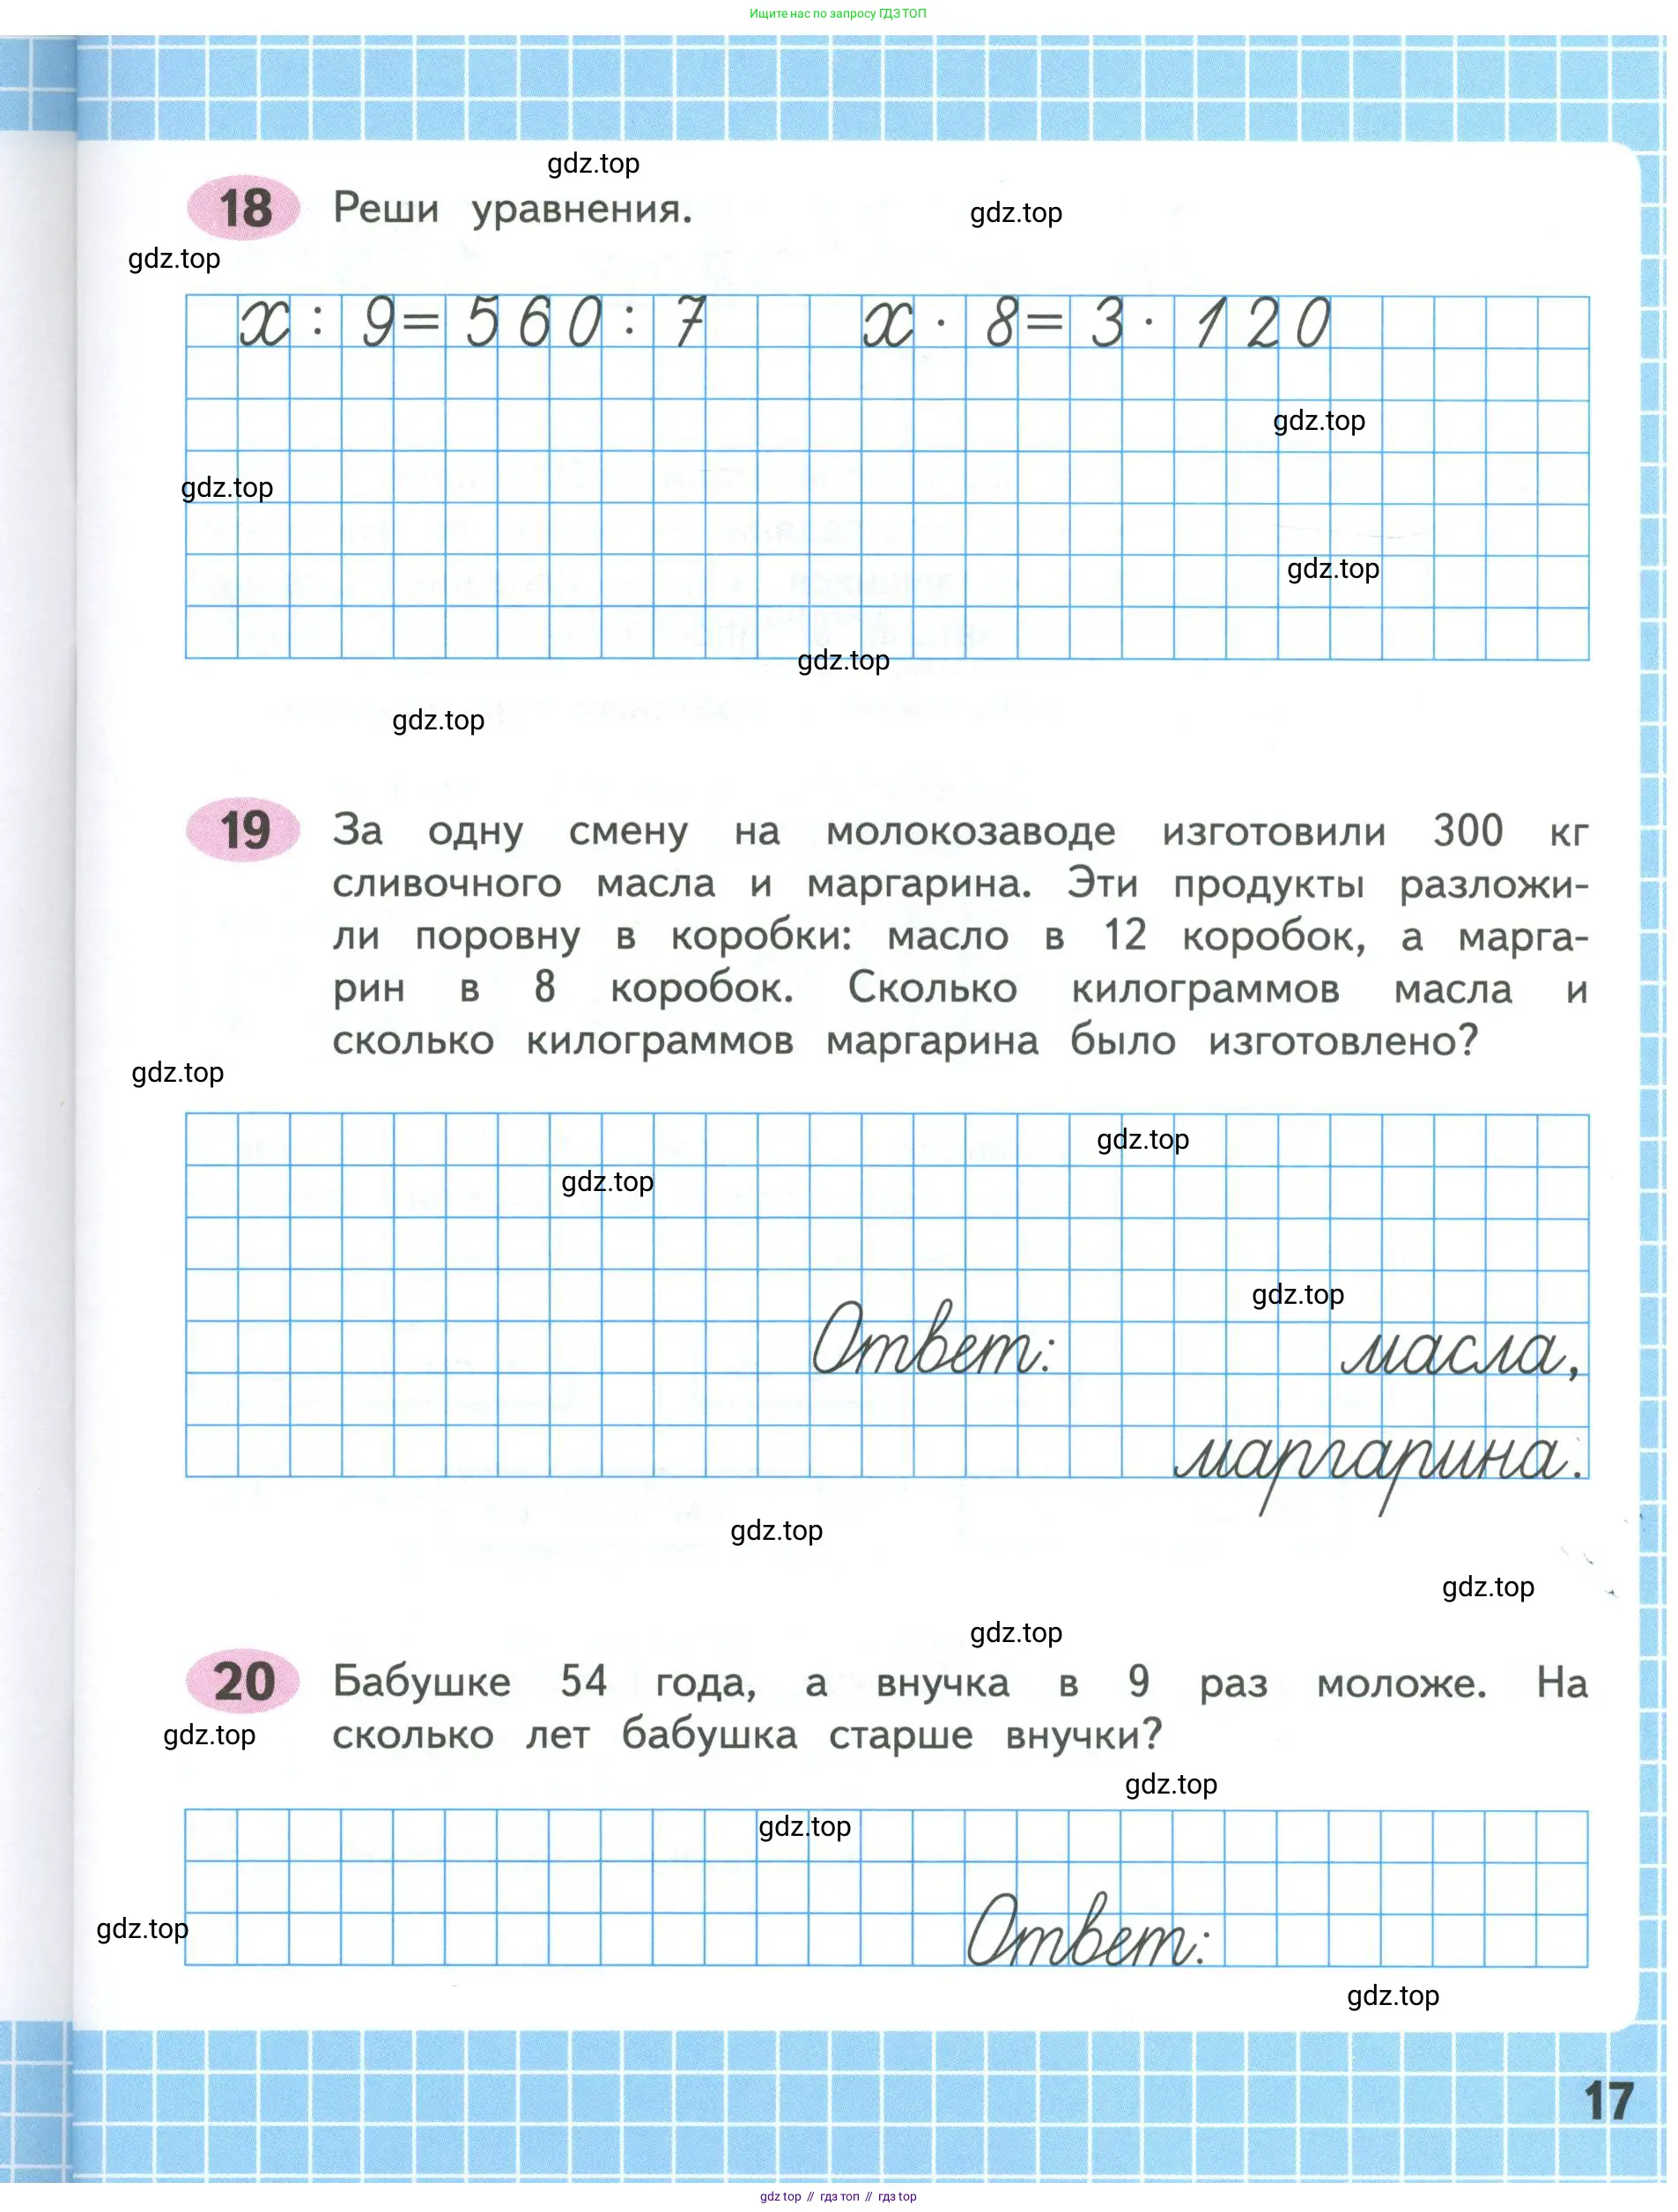 Ищите нас по запросу ГДЗ ТОП
gdz.top
18 Реши уравнения.
gdz.top
gdz.top
x : 9 = 560 : 7 x · 8 = 3 · 120
gdz.top
gdz.top
gdz.top
gdz.top
gdz.top
19 За одну смену на молокозаводе изготовили 300 кг
сливочного масла и маргарина. Эти продукты разложи-
ли поровну в коробки: масло в 12 коробок, а марга-
рин в 8 коробок. Сколько килограммов масла и
сколько килограммов маргарина было изготовлено?
gdz.top
gdz.top
gdz.top
gdz.top
Ответ: масла,
маргарина.
gdz.top
gdz.top
gdz.top
20 Бабушке 54 года, а внучка в 9 раз моложе. На
сколько лет бабушка старше внучки?
gdz.top
gdz.top
gdz.top
gdz.top
Ответ:
gdz.top
17
gdz top // гдз топ // гдз top